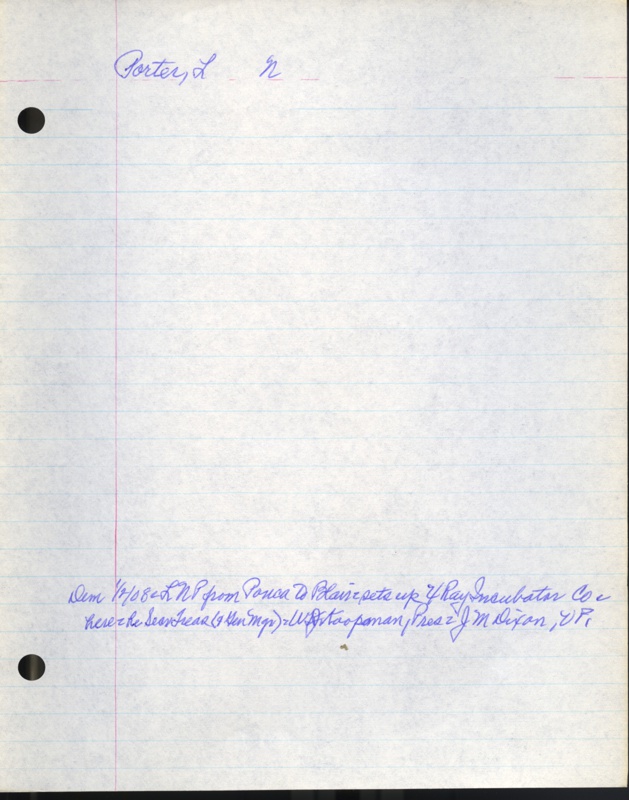 Porter, L N
Dem 1/2/08 = L N P from Ponca to Blair = sets up X Ray Incubator Co =
here = he Secr Treas (& Gen Mgr) = W J Koopman, Pres = J M Dixon, VP.